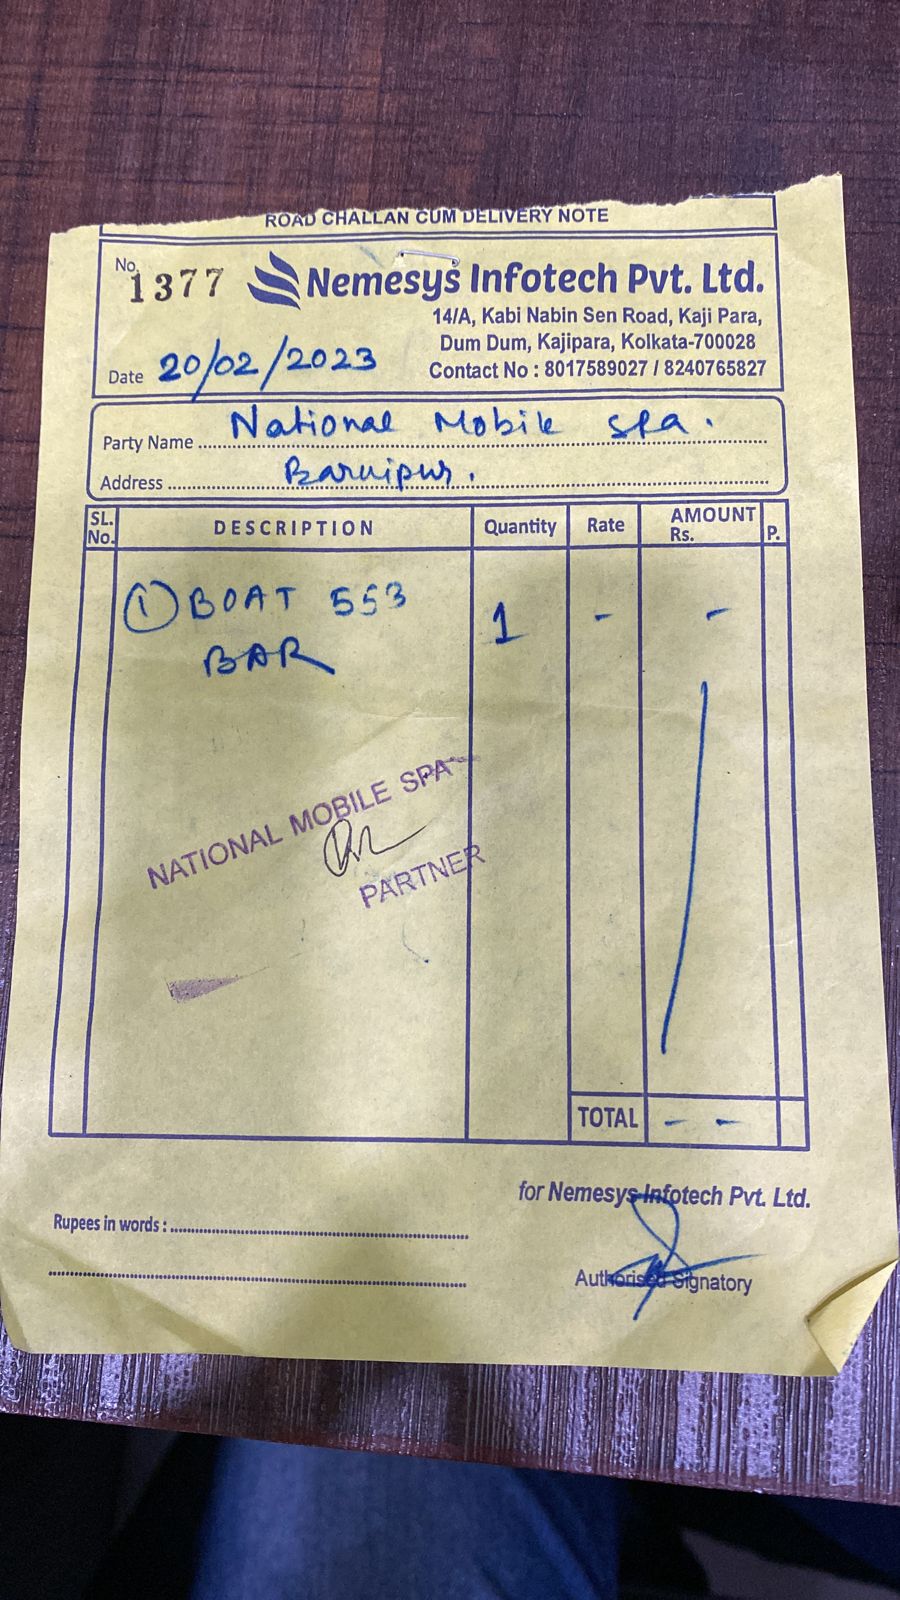 ROAD CHALLAN CUM DELIVERY NOTE
No. 1377
Nemesys Infotech Pvt. Ltd.
14/A, Kabi Nabin Sen Road, Kaji Para,
Dum Dum, Kajipara, Kolkata-700028
Contact No : 8017589027 / 8240765827
Date 20/02/2023
Party Name National Mobile Spa.
Address Baruipur.
SL. No. DESCRIPTION Quantity Rate AMOUNT Rs. P.
① BOAT 553 1 - -
BAR
NATIONAL MOBILE SPA
PARTNER
TOTAL - -
for Nemesys Infotech Pvt. Ltd.
Rupees in words :
Authorised Signatory